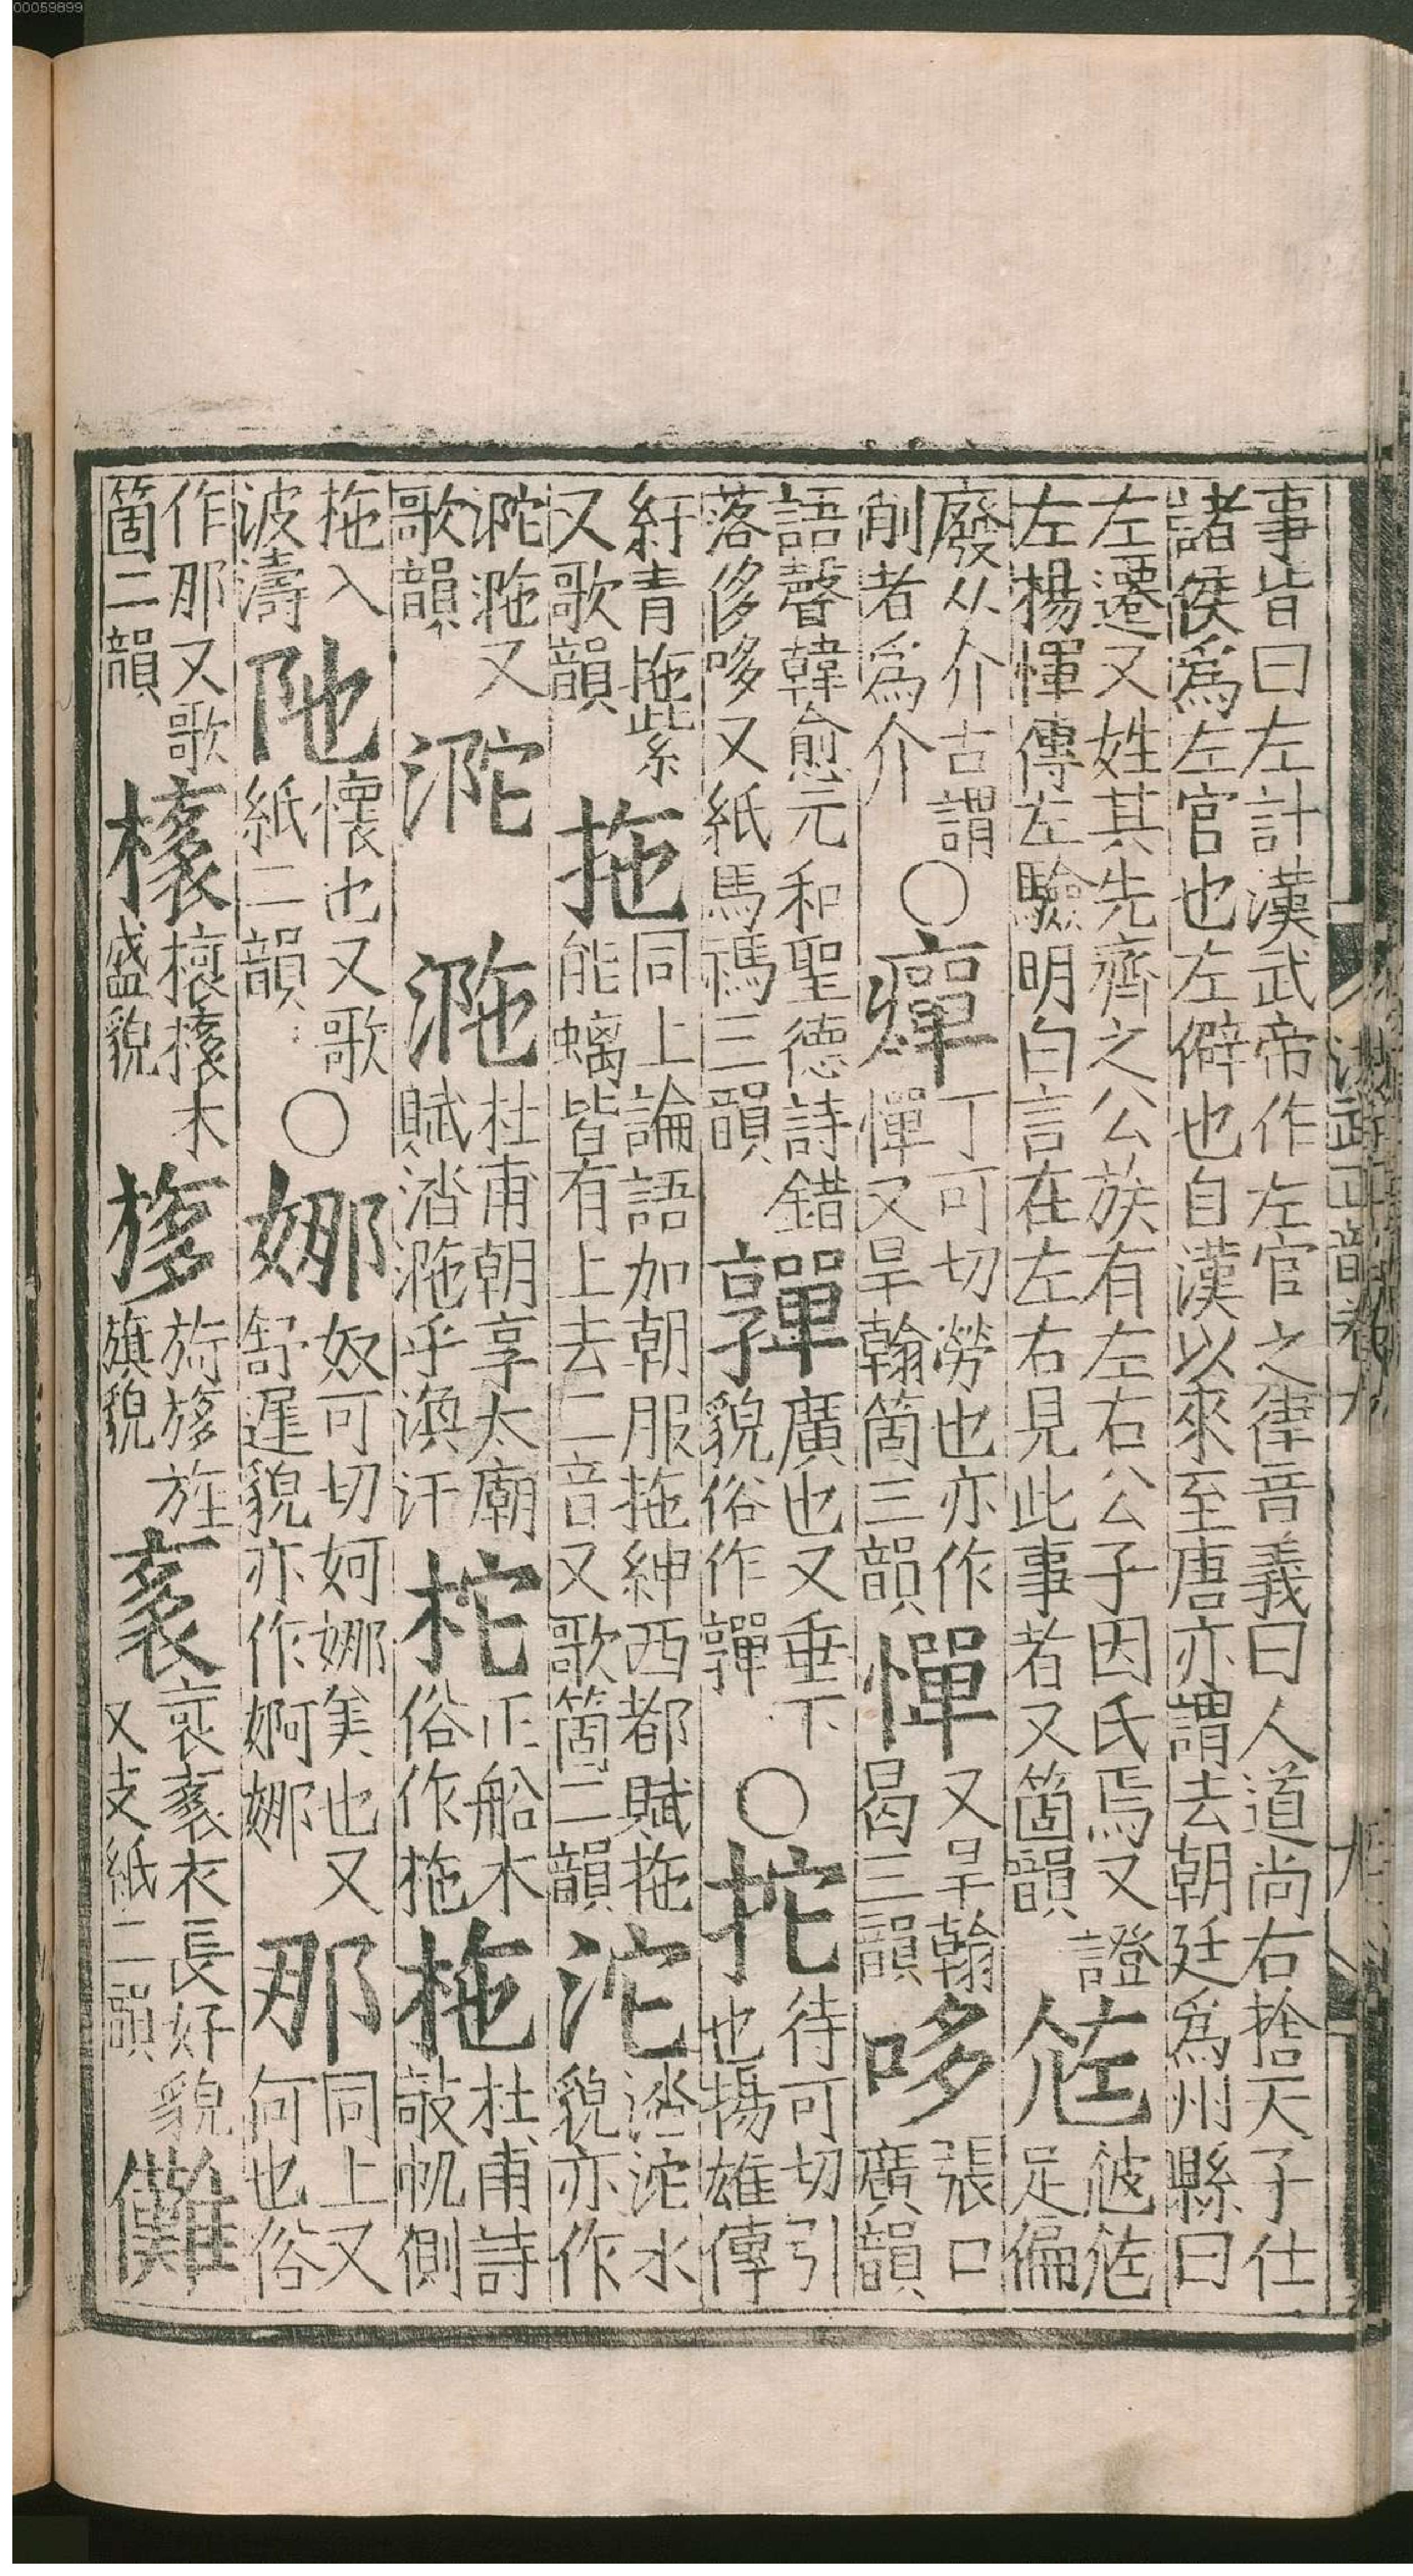 00059899
事皆曰左計漢武帝作左官之律音義曰人道尚右捨天子仕
諸侯爲左官也左僻也自漢以來至唐亦謂去朝廷爲州縣曰
左遷又姓其先齊之公族有左右公子因氏焉又證
左楊惲傳左驗明白言在左右見此事者又箇韻
㝾彼㝾
足偏
廢从介古謂
削者爲介
○癉
丁可切勞也亦作
憚又旱翰箇三韻
憚
又旱翰
曷三韻
哆
張口
廣韻
語聲韓愈元和聖德詩錯
落侈哆又紙馬禡三韻
嚲
廣也又垂下
貌俗作嚲
○拕
待可切引
也揚雄傳
紆青拖紫
又歌韻
拖
同上論語加朝服拖紳西都賦拖
能螭皆有上去二音又歌箇二韻
沱
淊沱水
貌亦作
沱㴰又
歌韻
㴰
杜甫朝享太廟
賦淊㴰乎渙汗
柁
正船木
俗作柂
柂
杜甫詩
敲帆側
柂入
波濤
陁
懷也又歌
紙二韻
○娜
奴可切妸娜美也又
舒遲貌亦作婀娜
那
同上又
何也俗
作那又歌
箇二韻
木
盛貌
旖旎旌
旗貌
衣長好貌
又支紙二韻
儺